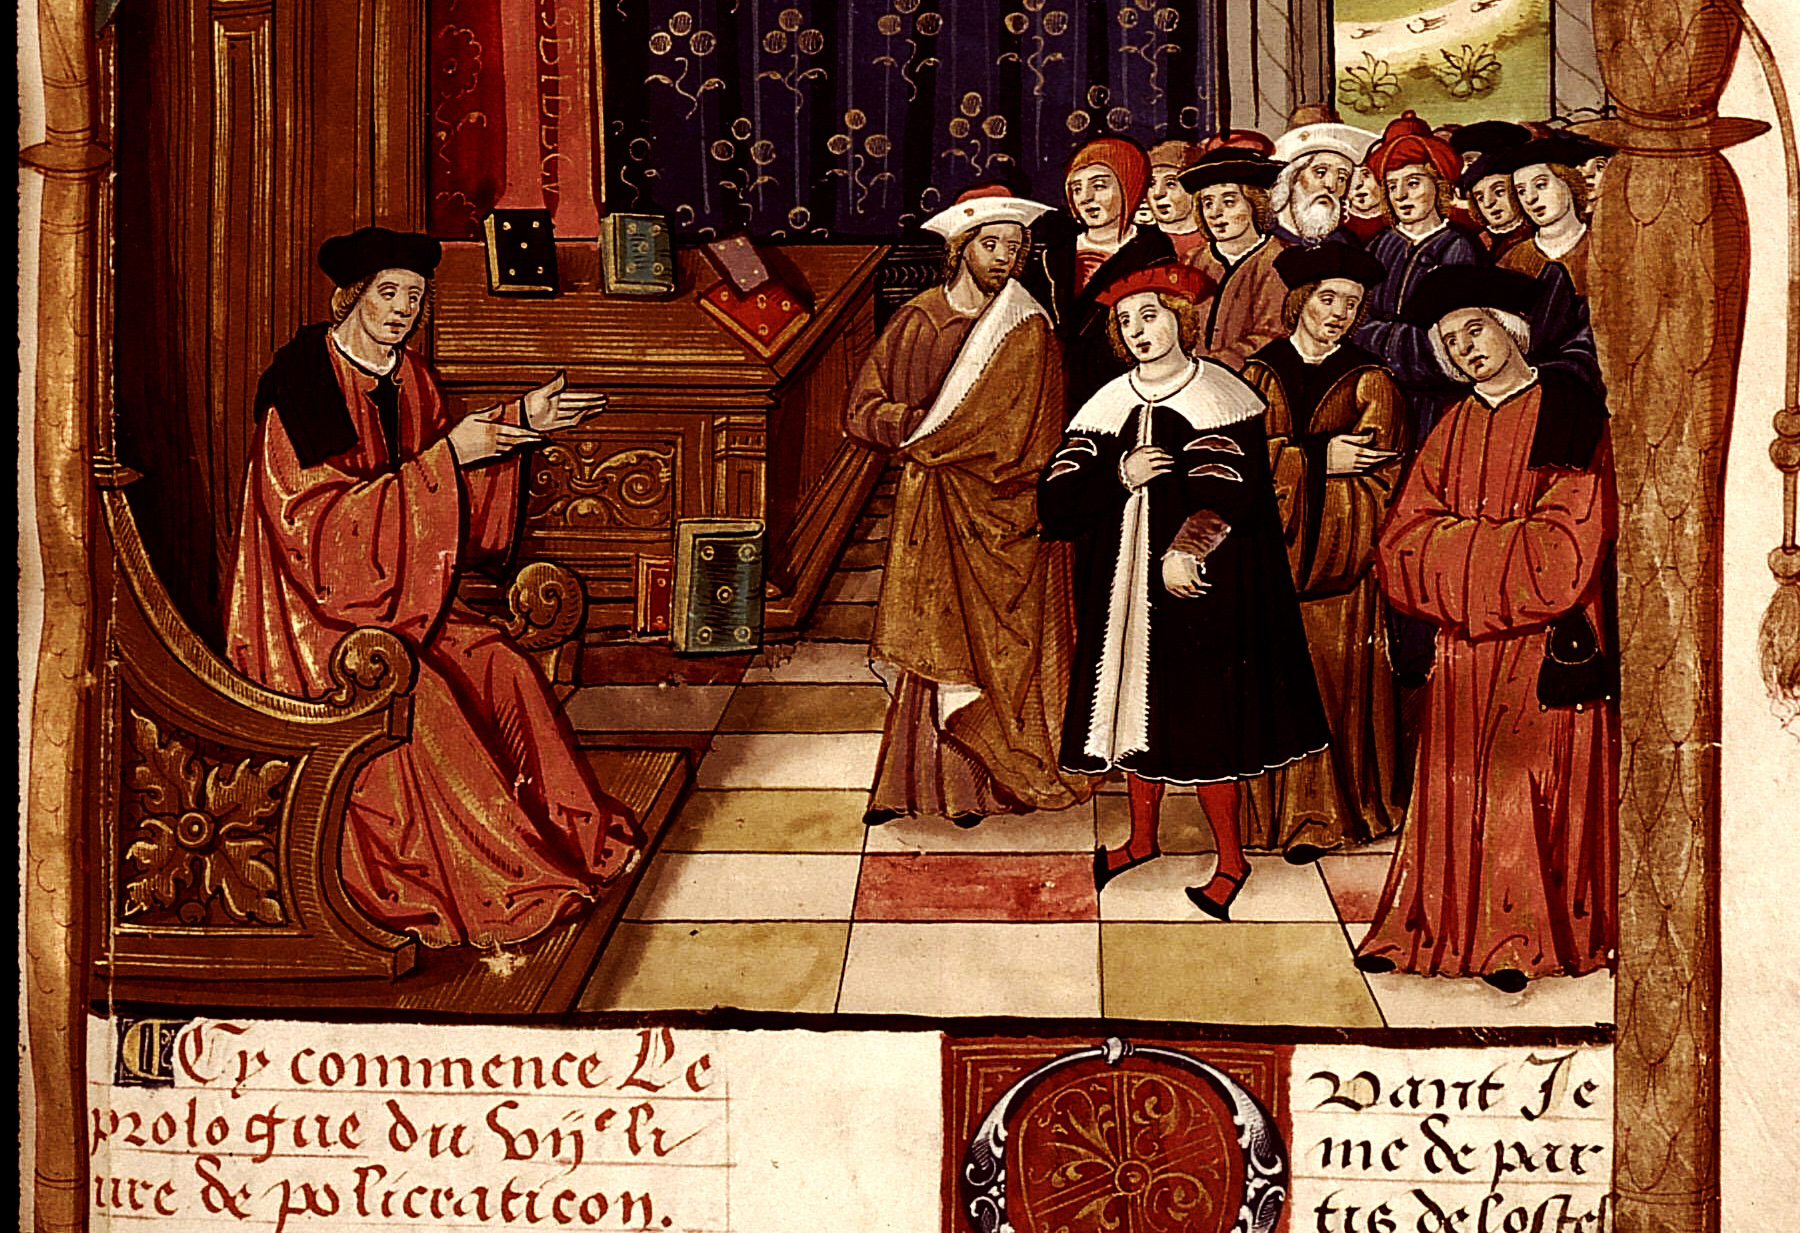 Cy commence Le
prologue du vije li
ure de policraticon.
Quant Je
me depar
tis de lostel